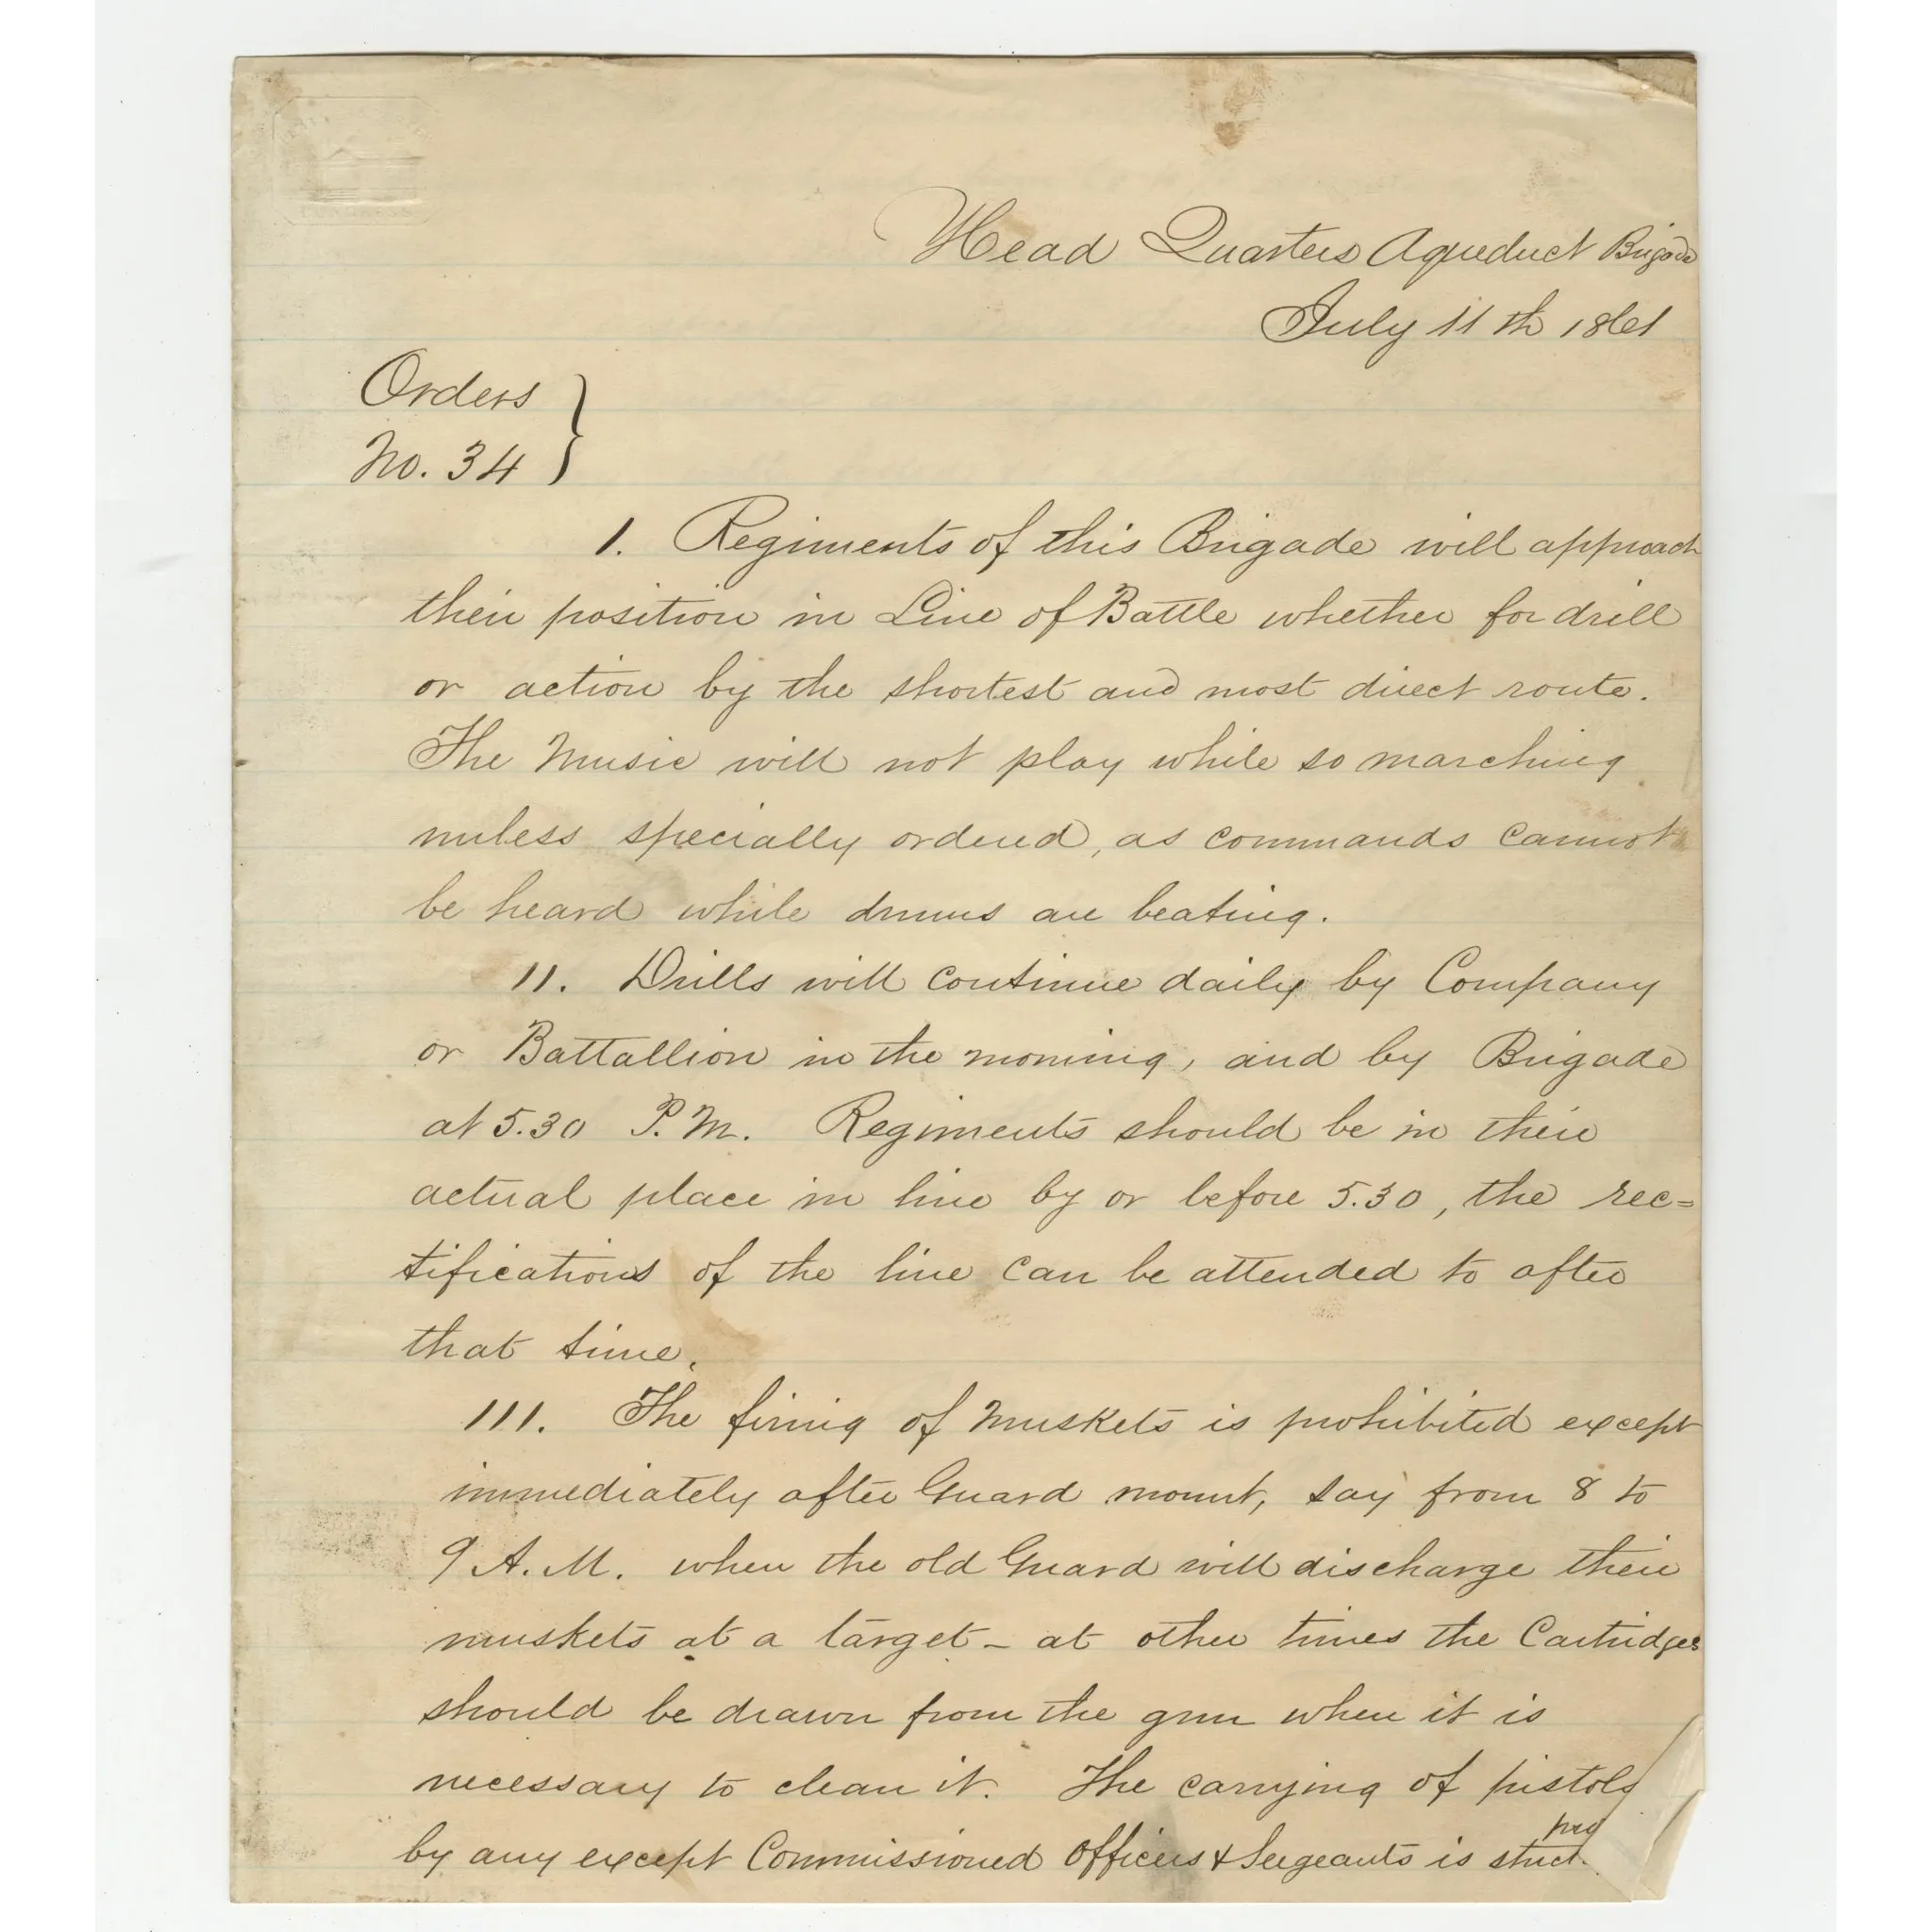 Head Quarters Aqueduct Brigade
July 11th 1861
Orders
No. 34
1. Regiments of this Brigade will approach
their position in Line of Battle whether for drill
or action by the shortest and most direct route.
The Music will not play while so marching
unless specially ordered, as commands cannot
be heard while drums are beating.
11. Drills will continue daily by Company
or Battallion in the morning, and by Brigade
at 5.30 P.M. Regiments should be in their
actual place in line by or before 5.30, the rec=
tifications of the line can be attended to after
that time.
111. The firing of Muskets is prohibited except
immediately after Guard mount, say from 8 to
9 A.M. when the old Guard will discharge their
muskets at a target - at other times the Cartridges
should be drawn from the gun when it is
necessary to clean it. The carrying of pistols
by any except Commissioned Officers & Sergeants is strict